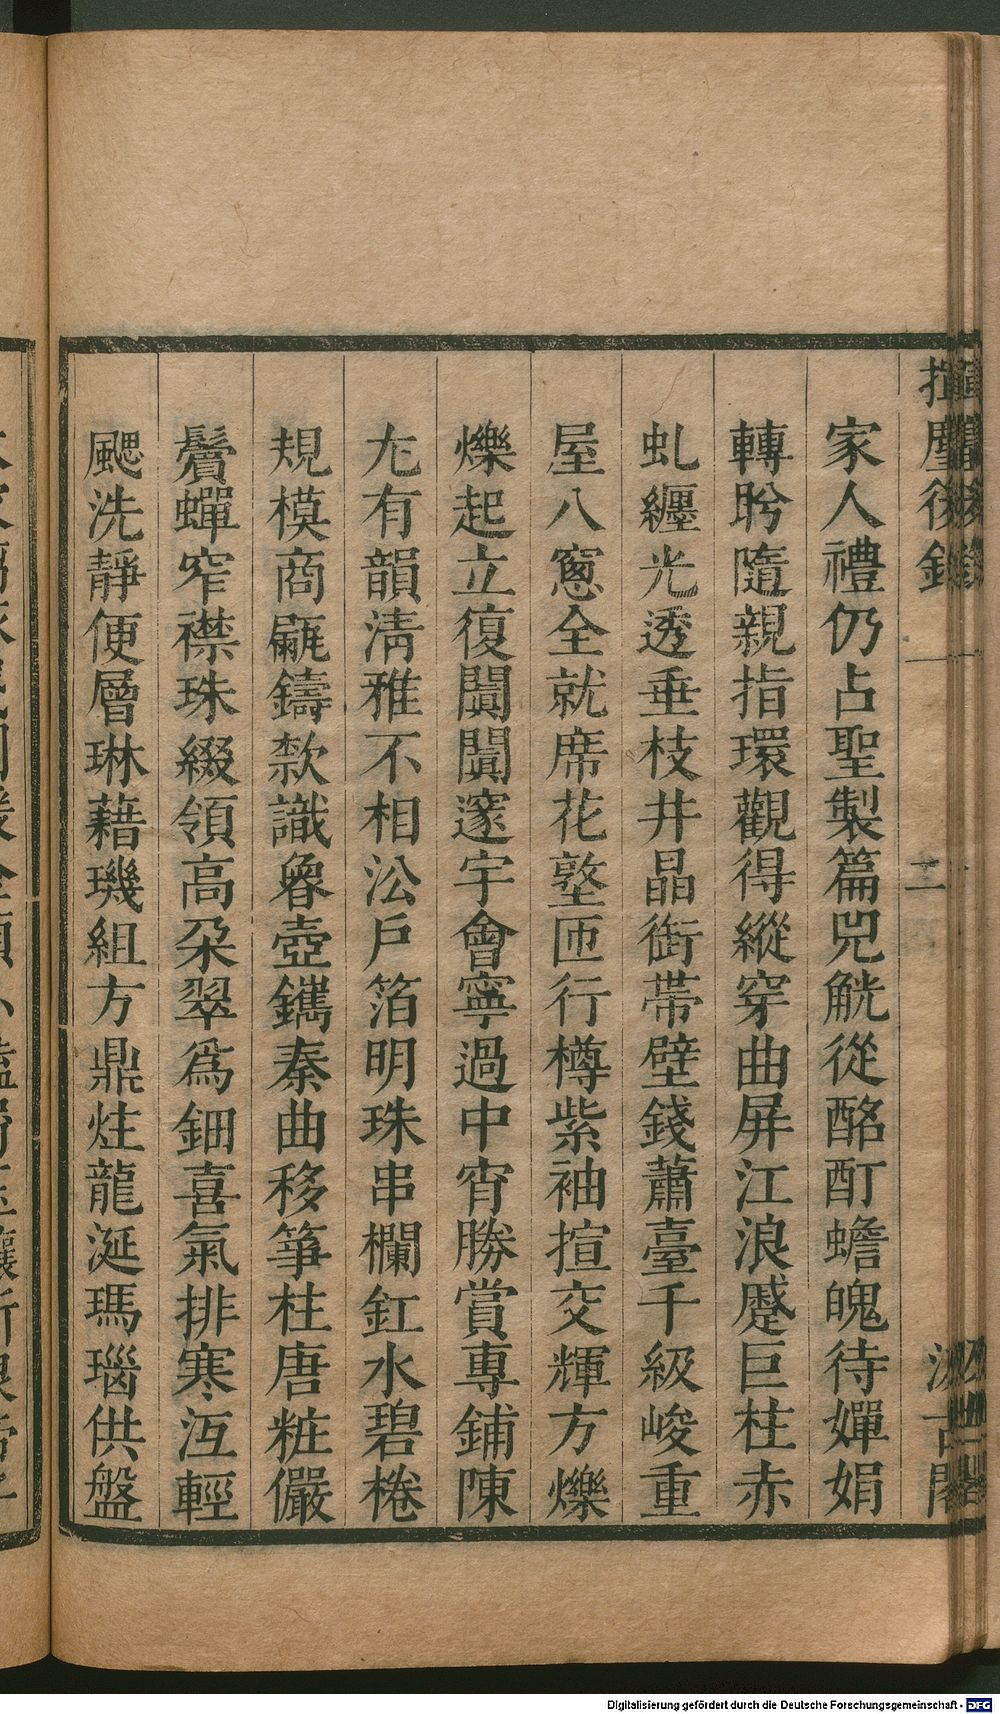 揮麈後錄
二
汲古閣
家人禮仍占聖製篇兕觥從酩酊蟾魄待嬋娟
轉盻隨親指環觀得縱穿曲屏江浪蹙巨柱赤
虬纏光透垂枝井晶銜帶壁錢蕭臺千級峻重
屋八窻全就席花墪匝行樽紫袖揎交輝方爍
爍起立復闐闐邃宇會寧過中宵勝賞專鋪陳
尢有韻淸雅不相沿戶箔明珠串欄釭水碧棬
規模商甗鑄欵識魯壺鐫秦曲移箏柱唐粧儼
鬢蟬窄襟珠綴領高朶翠爲鈿喜氣排寒沍輕
颸洗靜便層琳藉璣組方鼎炷龍涎瑪瑙供盤
Digitalisierung gefördert durch die Deutsche Forschungsgemeinschaft - DFG